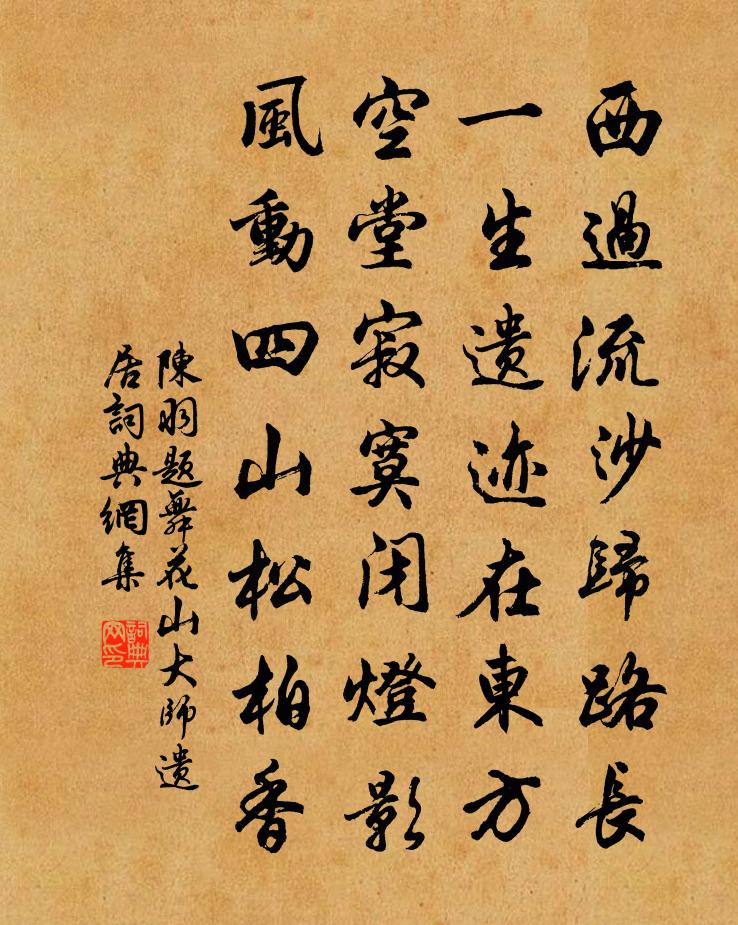 西過流沙歸路長
一生遺迹在東方
空堂寂寞闭燈影
風動四山松柏香
陳羽題舞花山大師遺
居詞典網集
詞典
网印